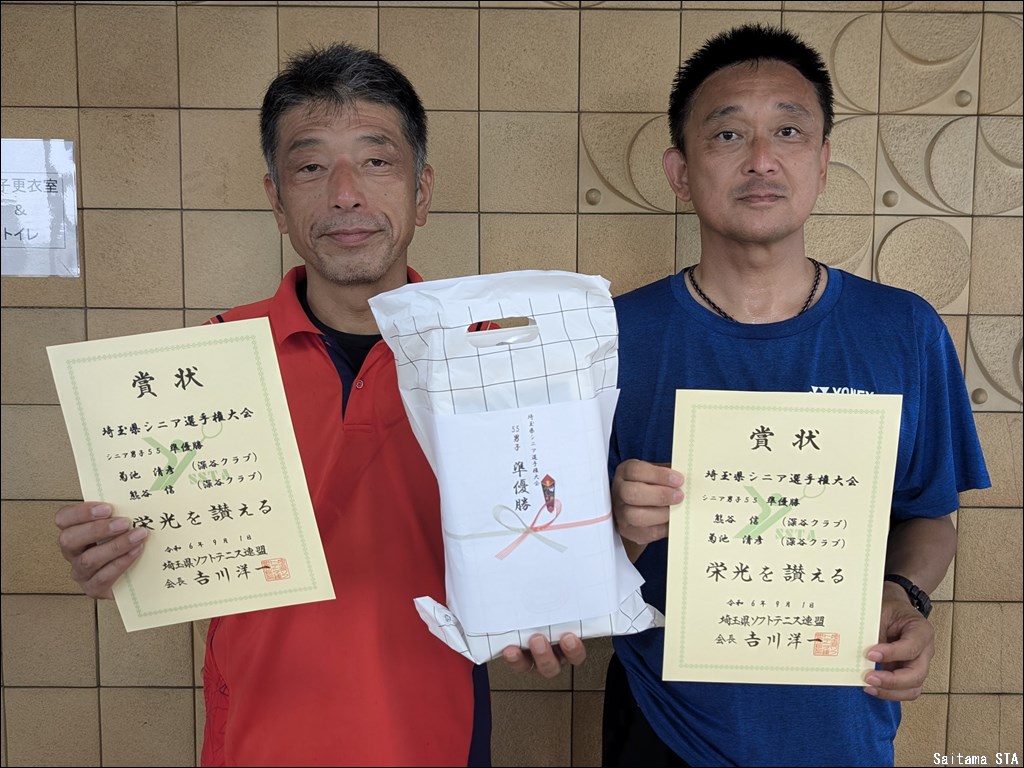 子更衣室
&
トイレ
賞状
埼玉県シニア選手権大会
シニア男子55 準優勝
菊池 清彦 (深谷クラブ)
熊谷 信 (深谷クラブ)
SSTA
栄光を讃える
令和 6年 9月 1日
埼玉県ソフトテニス連盟
会長 吉川洋一
埼玉県シニア選手権大会
55男子 準優勝
YONEX
賞状
埼玉県シニア選手権大会
シニア男子55 準優勝
熊谷 信 (深谷クラブ)
菊池 清彦 (深谷クラブ)
SSTA
栄光を讃える
令和 6年 9月 1日
埼玉県ソフトテニス連盟
会長 吉川洋一
Saitama STA